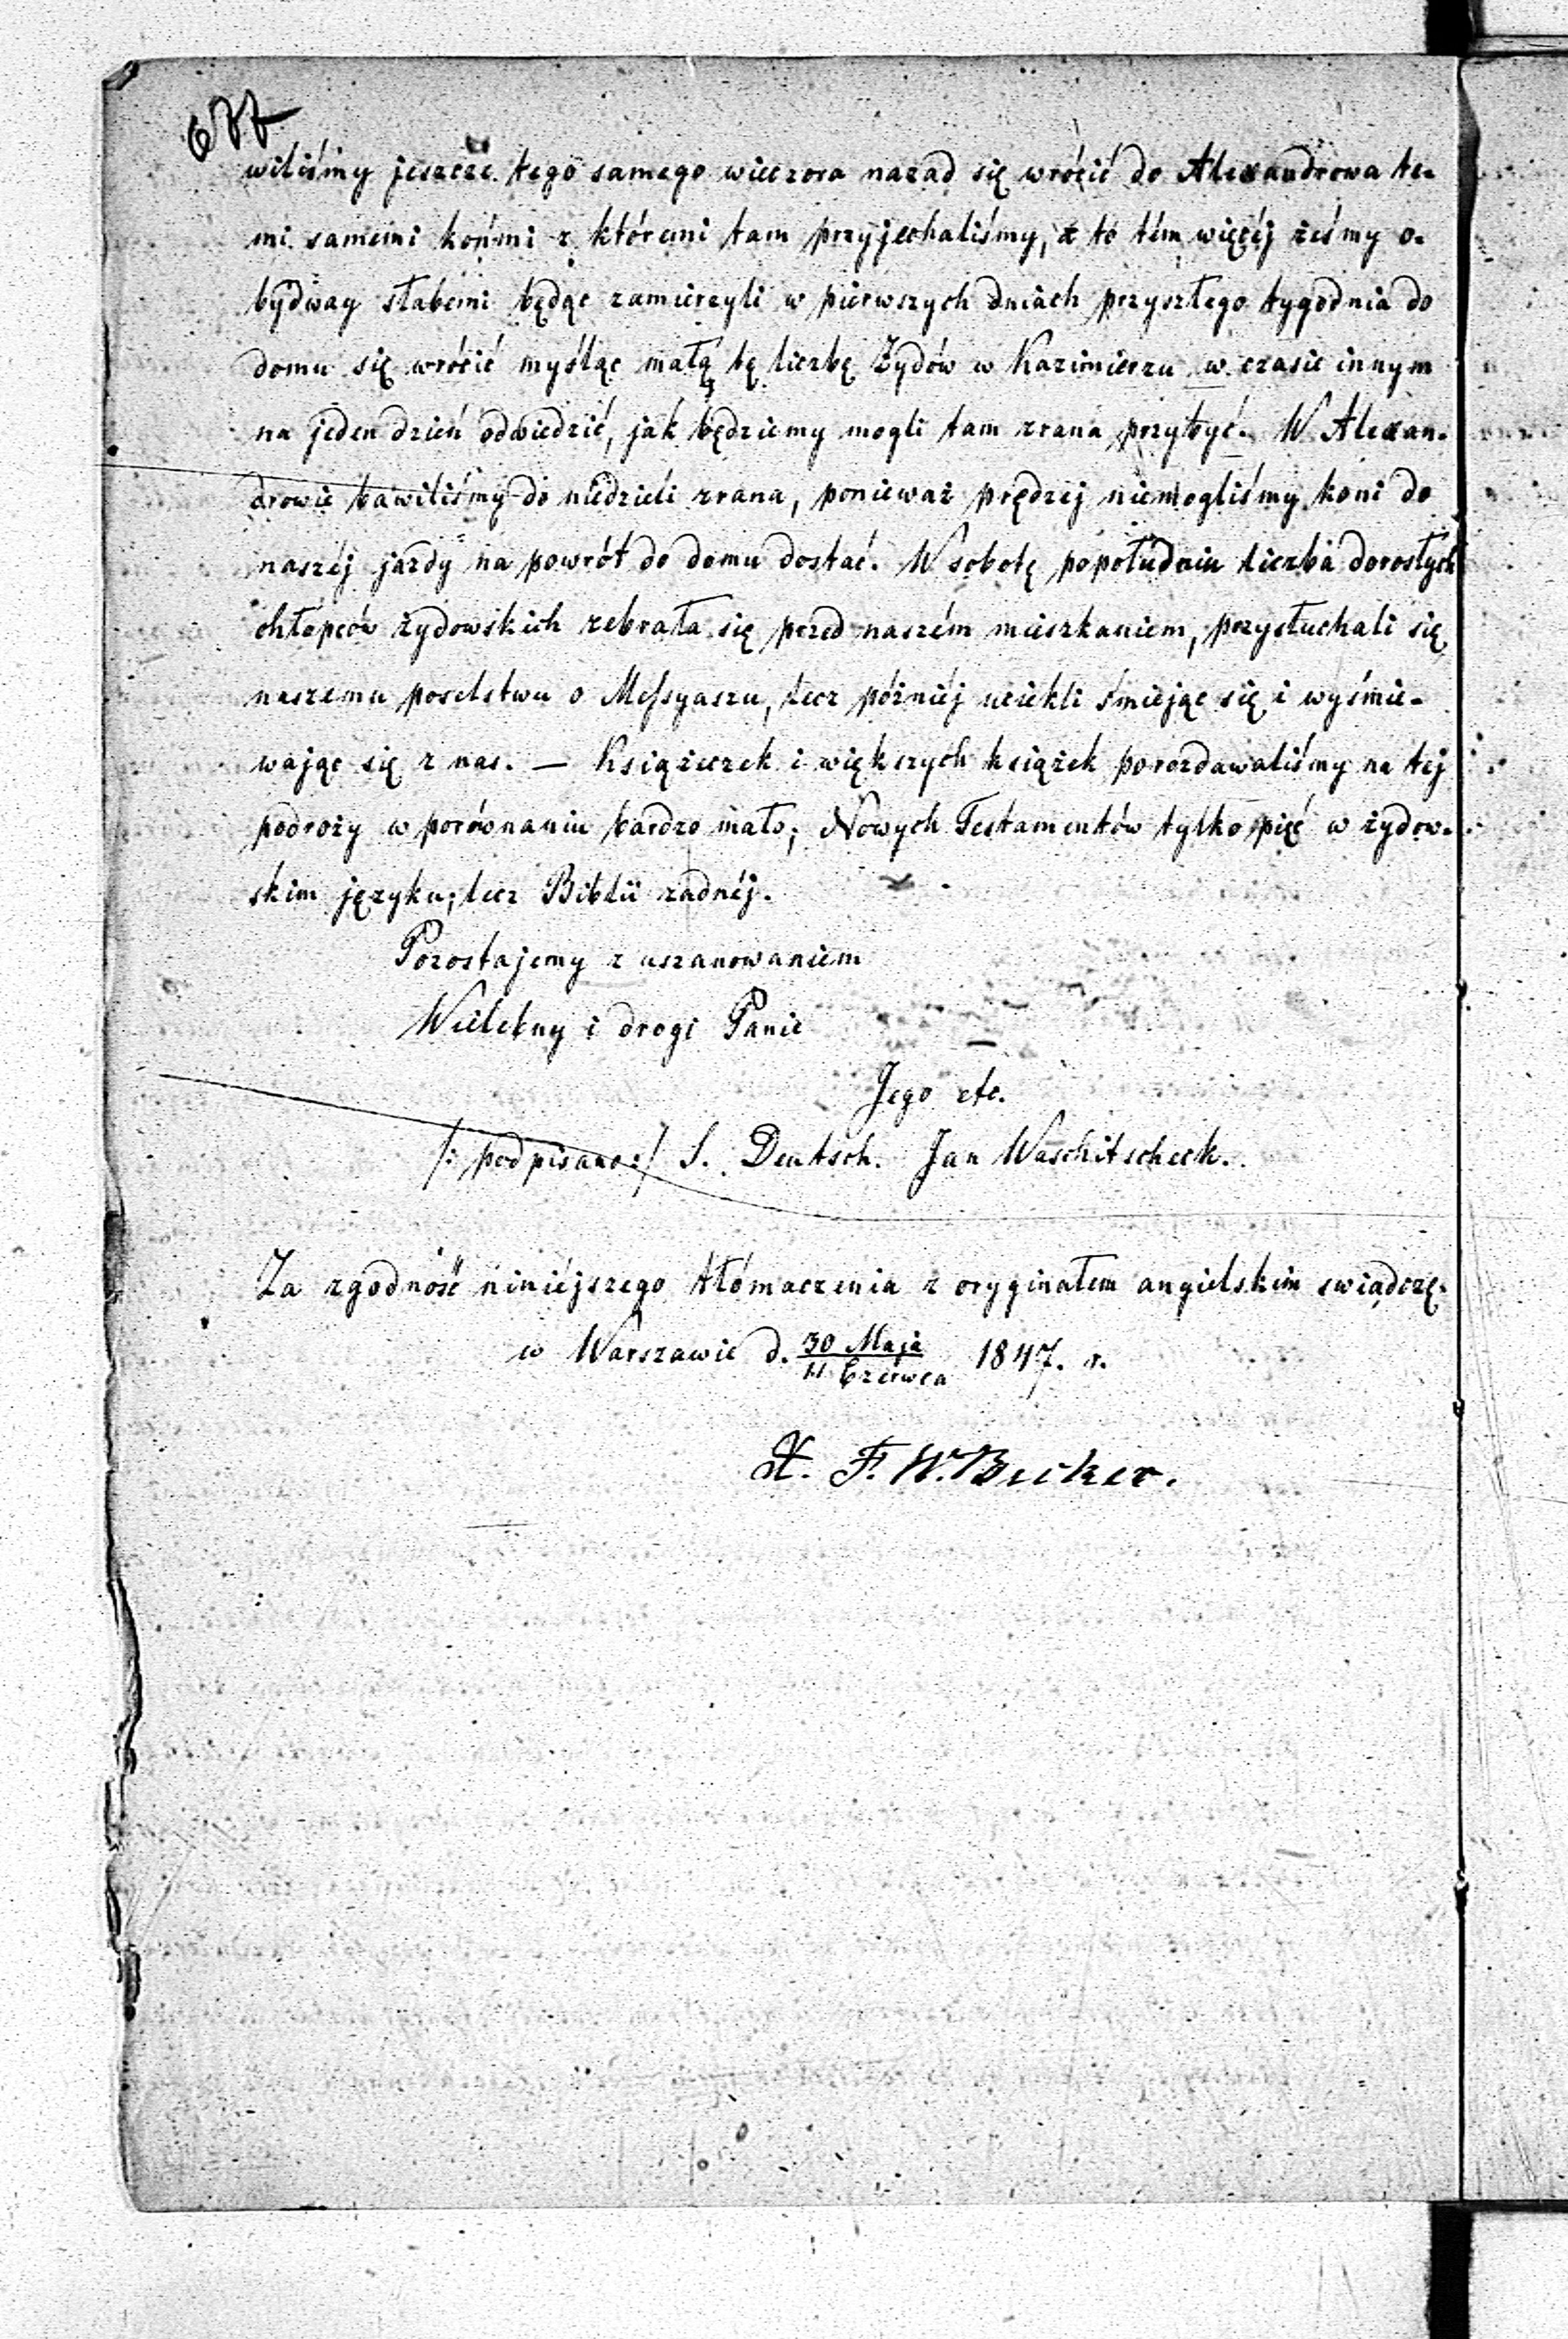 wiliśmy jeszcze tego samego wieczora nazad się wrócić do Alexandrowa te-
mi samemi końmi z któremi tam przyjechaliśmy, a to tém więcéj ześmy o-
bydway słabemi będąc zamierzyli w pierwszych dniach przyszłego tygodnia do
domu się wrócić myśląc małą tę liczbę Żydów w Kazimierzu w czasie innym
na jeden dzień odwiedzić, jak będziemy mogli tam zrana przybyć. W Alexan-
drowie bawiliśmy do niedzieli zrana, ponieważ prędzej niemogliśmy koni do
naszéj jazdy na powrót do domu dostać. W sobotę popołudniu liczba dorosłych
chłopców żydowskich zebrała się przed naszém mieszkaniem, przysłuchali się
naszemu poselstwu o Messyaszu, lecz późniéj uciekli śmiejąc się i wyśmie-
wając się z nas. — Książeczek i większych książek porozdawaliśmy na tej
podroży w porównaniu bardzo mało; Nowych Testamentów tylko pięć w żydow-
skim języku; lecz Biblii zadnéj.
Pozostajemy z uszanowaniem
Wielebny i drogi Panie
Jego etc.
/: podpisano :/ S. Deutsch. Jan Waschitscheck.
Za zgodność niniéjszego tłómaczenia z oryginałem angielskim swiadczę.
w Warszawie d. 30 Maja / 11 Czerwca 1847. r.
F. W. Becker.